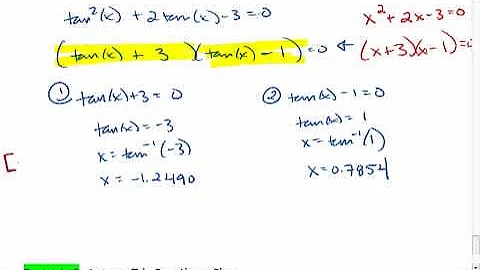 tan²(x) + 2tan(x) - 3 = 0
x² + 2x - 3 = 0
(tan(x) + 3)(tan(x) - 1) = 0 ← (x+3)(x-1) = 0
① tan(x) + 3 = 0
tan(x) = -3
x = tan⁻¹(-3)
x = -1.2490
② tan(x) - 1 = 0
tan(x) = 1
x = tan⁻¹(1)
x = 0.7854
[